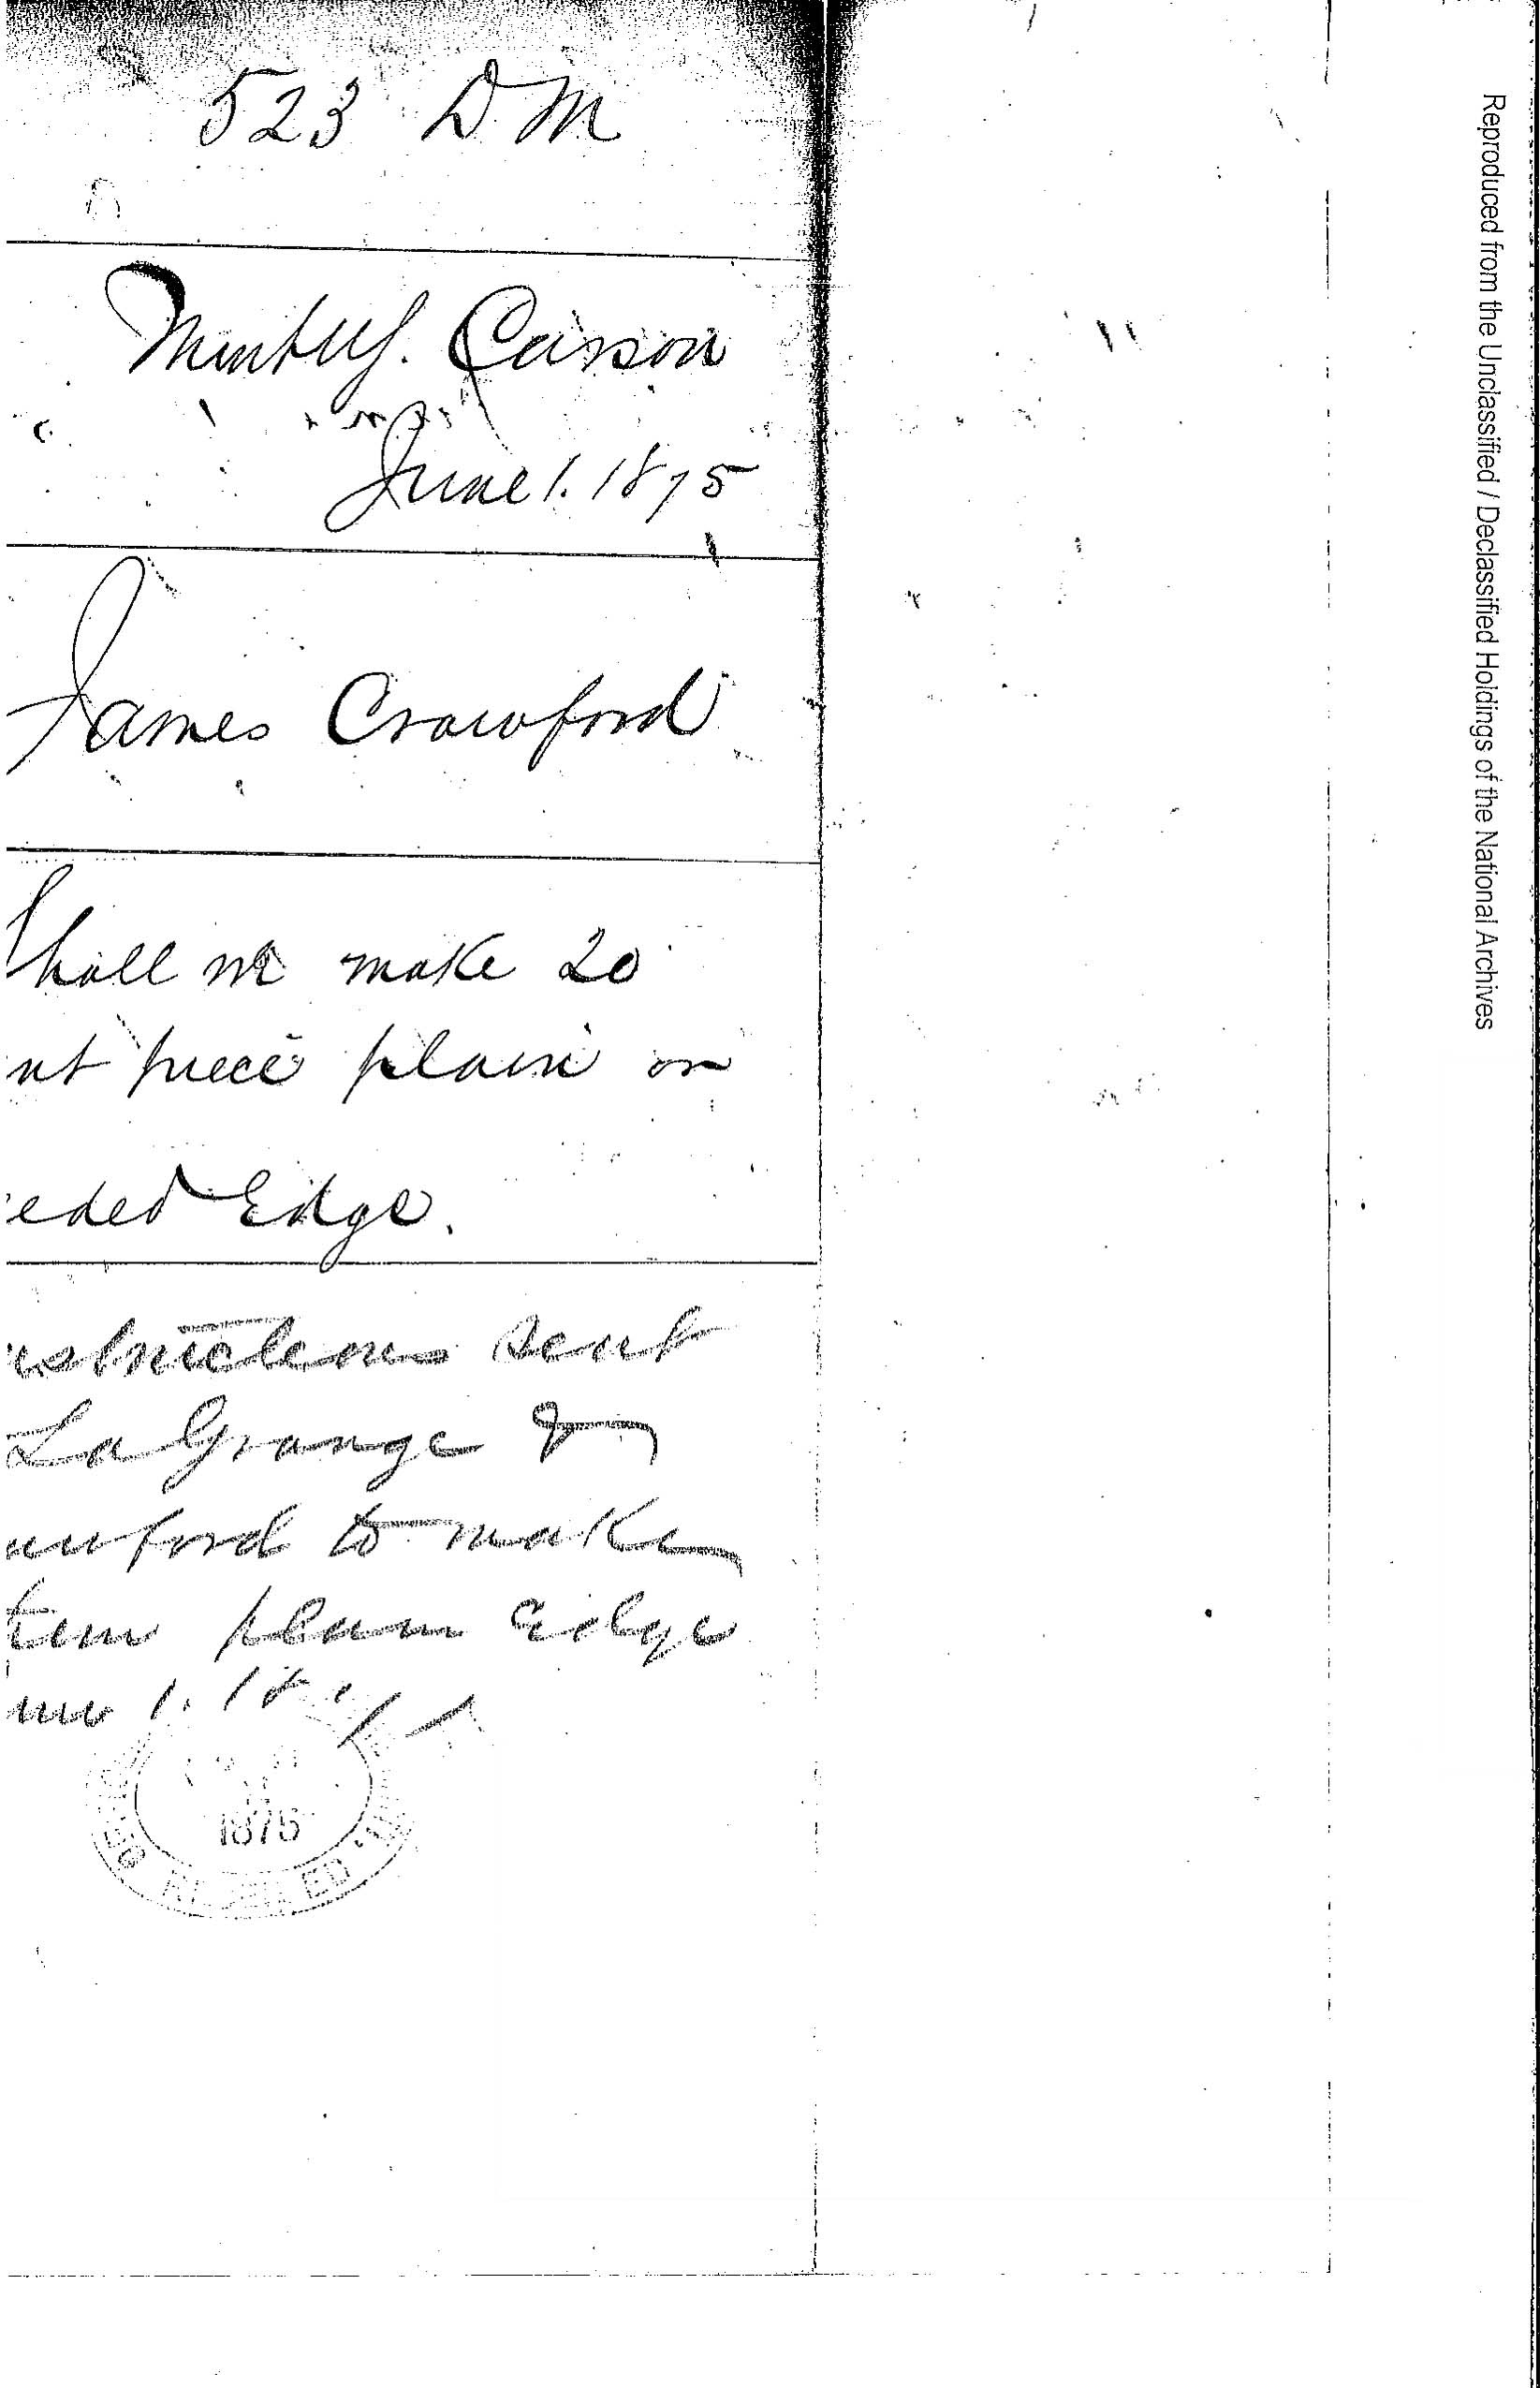 523 DM
Mint U.S. Carson
June 1. 1875
James Crawford
Shall we make 20
nt piece plain or
eded Edge.
nstructions sent
La Grange &
awford to make
tem plain Edge
une 1. 18
1875
Reproduced from the Unclassified / Declassified Holdings of the National Archives